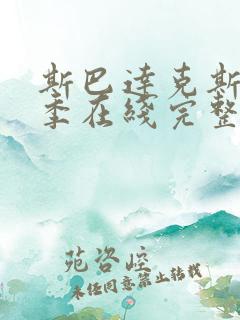 斯巴达克斯
季在线完整
苑咨崆
未经同意禁止转载